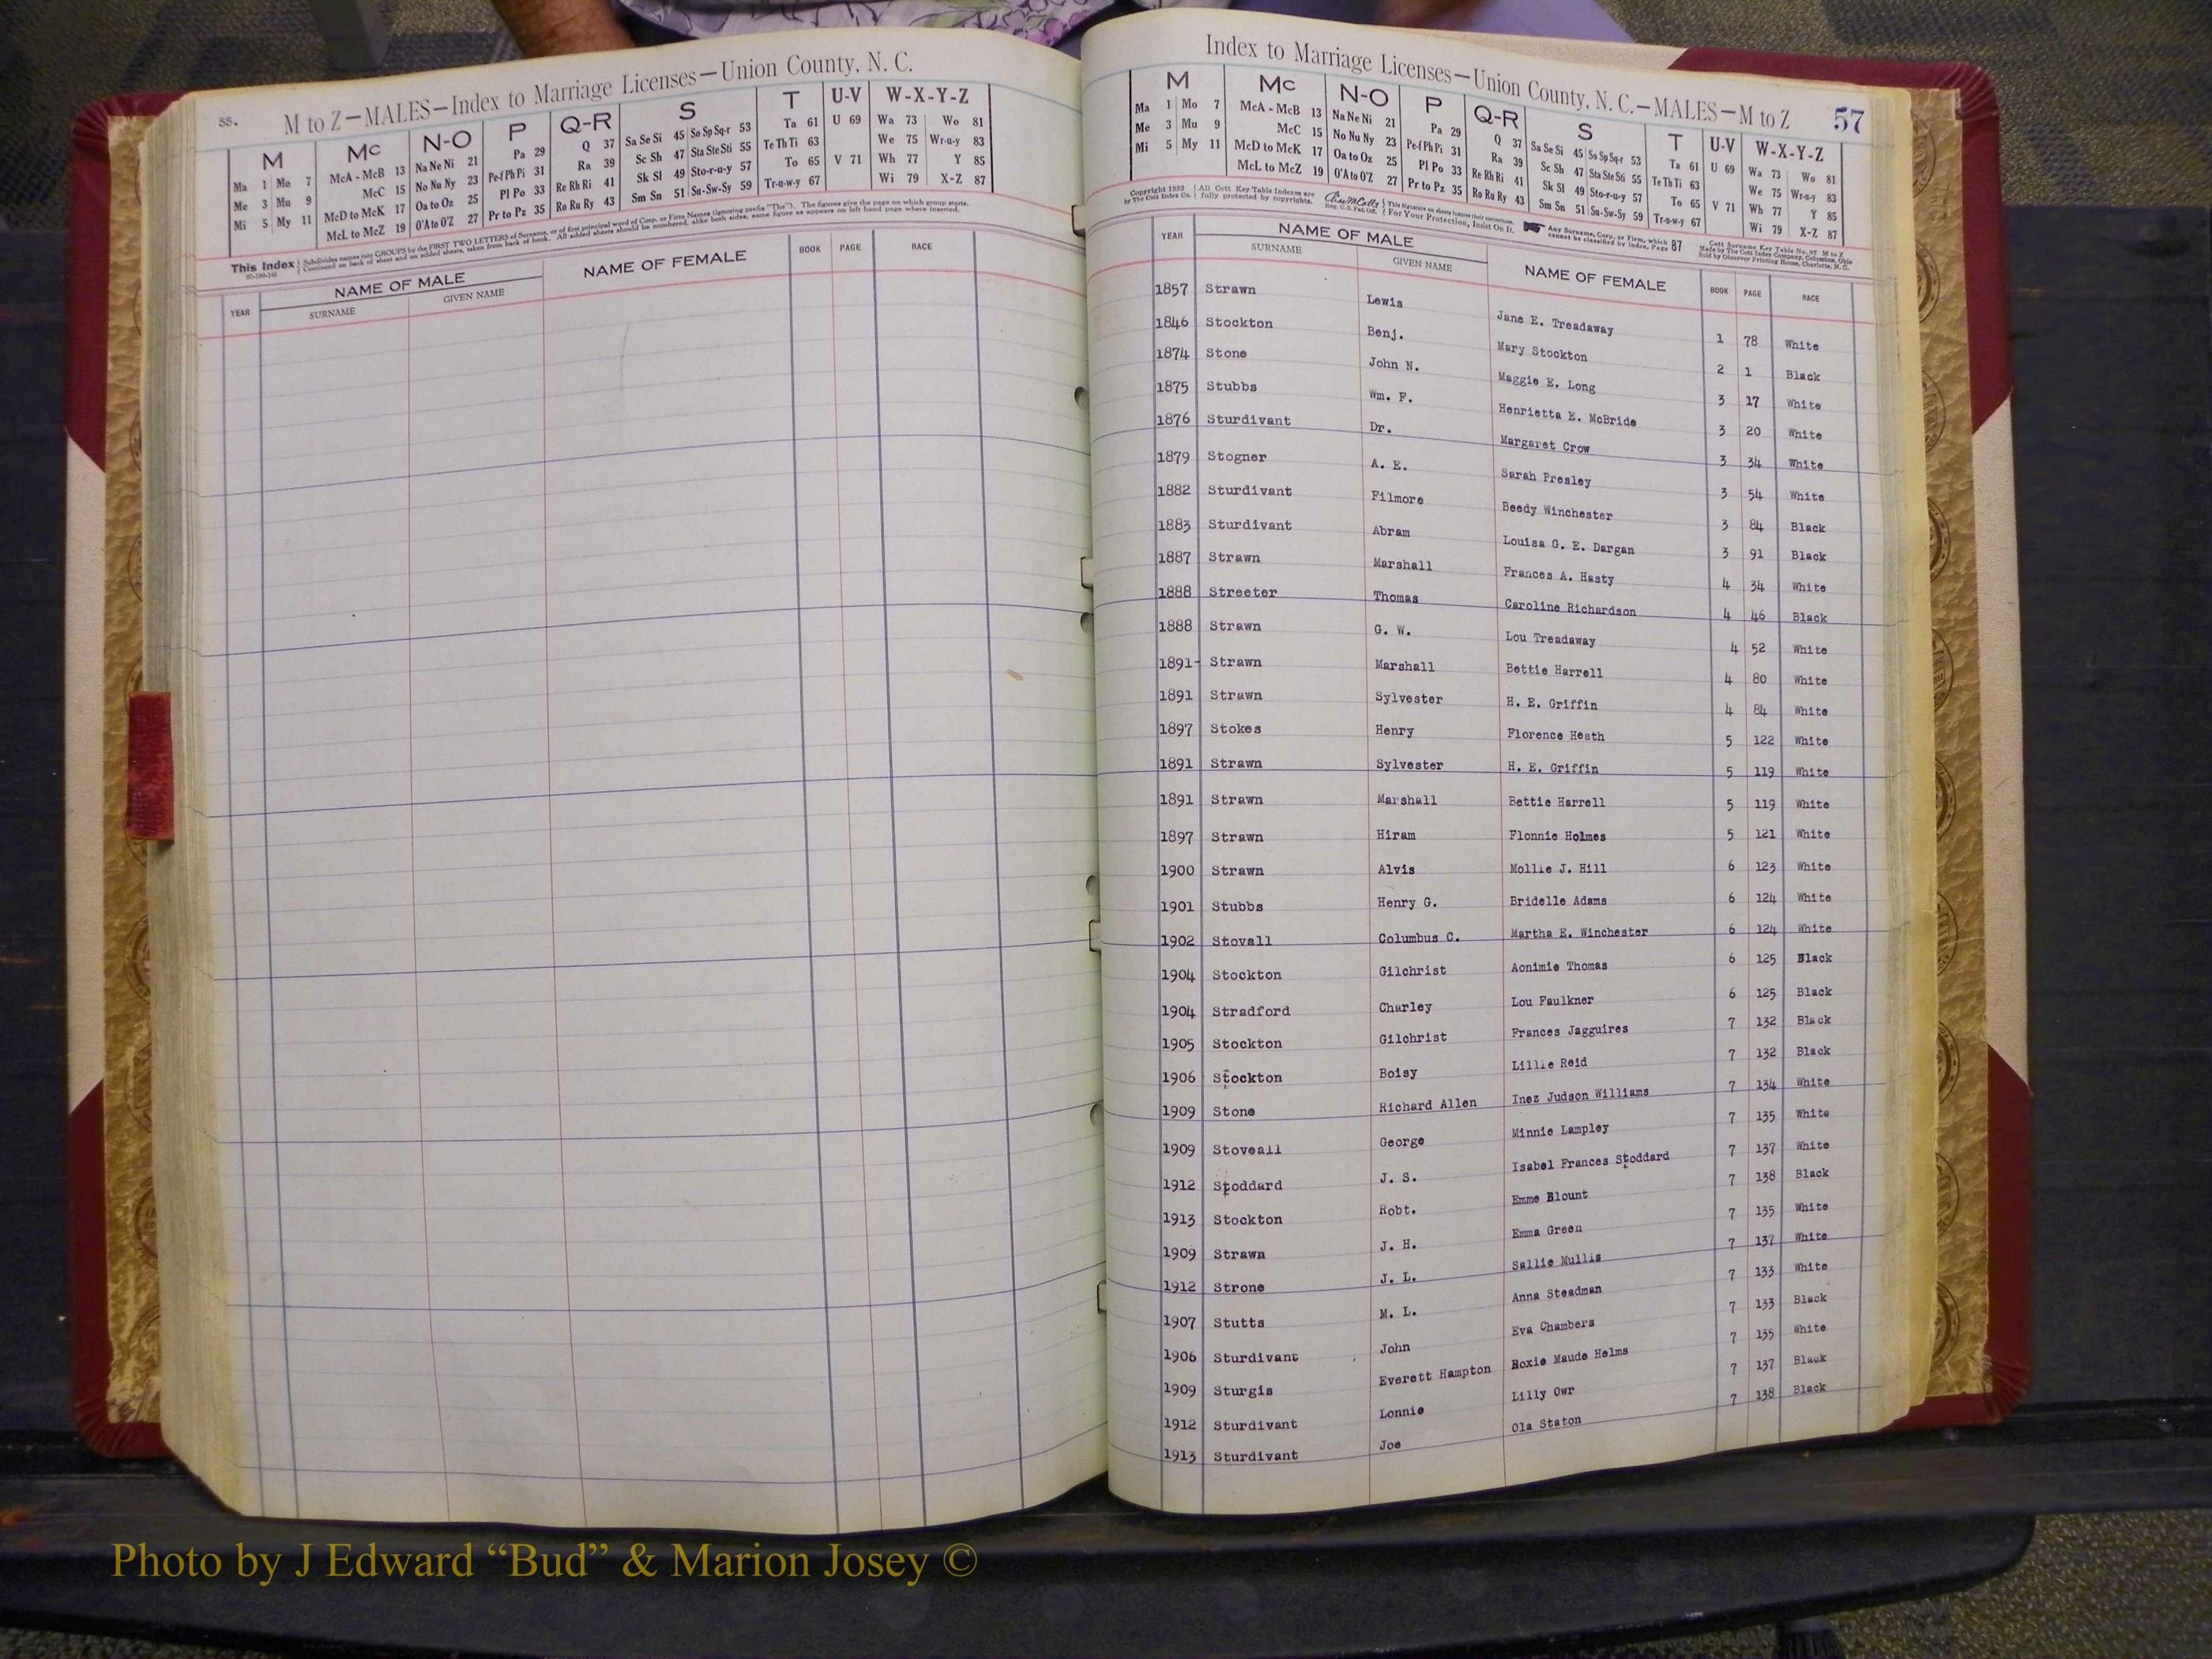 55.
M to Z—MALES—Index to Marriage Licenses—Union County, N. C.
M Mc N-O P Q-R S T U-V W-X-Y-Z
Ma 1 Mo 7 McA - McB 13 Na Ne Ni 21 Pa 29 Q 37 Sa Se Si 45 So Sp Sq-r 53 Ta 61 U 69 Wa 73 Wo 81
Me 3 Mu 9 McC 15 No Nu Ny 23 Pe-f Ph Pi 31 Ra 39 Sc Sh 47 Sta Ste Sti 55 Te Th Ti 63 We 75 Wr-u-y 83
Mi 5 My 11 McD to McK 17 Oa to Oz 25 Pl Po 33 Re Rh Ri 41 Sk Sl 49 Sto-r-u-y 57 To 65 V 71 Wh 77 Y 85
McL to McZ 19 O'A to O'Z 27 Pr to Pz 35 Ro Ru Ry 43 Sm Sn 51 Su-Sw-Sy 59 Tr-u-w-y 67 Wi 79 X-Z 87
This Index Subdivides names into GROUPS by the FIRST TWO LETTERS of Surname, or of first principal word of Corp. or Firm Names (ignoring prefix "The"). The figures give the page on which group starts.
Continued on back of sheet and on added sheets, taken from back of book. All added sheets should be numbered, alike both sides, same figure as appears on left hand page where inserted.
YEAR NAME OF MALE NAME OF FEMALE BOOK PAGE RACE
SURNAME GIVEN NAME
Index to Marriage Licenses—Union County, N. C.—MALES—M to Z 57
M Mc N-O P Q-R S T U-V W-X-Y-Z
Ma 1 Mo 7 McA - McB 13 Na Ne Ni 21 Pa 29 Q 37 Sa Se Si 45 So Sp Sq-r 53 Ta 61 U 69 Wa 73 Wo 81
Me 3 Mu 9 McC 15 No Nu Ny 23 Pe-f Ph Pi 31 Ra 39 Sc Sh 47 Sta Ste Sti 55 Te Th Ti 63 We 75 Wr-u-y 83
Mi 5 My 11 McD to McK 17 Oa to Oz 25 Pl Po 33 Re Rh Ri 41 Sk Sl 49 Sto-r-u-y 57 To 65 V 71 Wh 77 Y 85
McL to McZ 19 O'A to O'Z 27 Pr to Pz 35 Ro Ru Ry 43 Sm Sn 51 Su-Sw-Sy 59 Tr-u-w-y 67 Wi 79 X-Z 87
Copyright 1952 by The Cott Index Co. All Cott Key Table Indexes are fully protected by copyrights. For Your Protection, Insist On It. Any Surname, Corp. or Firm, which cannot be classified by Index, Page 87
Cott Surname Key Table No. 97 M to Z
Made by The Cott Index Company, Columbus, Ohio
Sold by Observer Printing House, Charlotte, N. C.
YEAR NAME OF MALE NAME OF FEMALE BOOK PAGE RACE
SURNAME GIVEN NAME
1857 Strawn Lewis Jane E. Treadaway 1 78 White
1846 Stockton Benj. Mary Stockton 2 1 Black
1874 Stone John N. Maggie E. Long 3 17 White
1875 Stubbs Wm. F. Henrietta E. McBride 3 20 White
1876 Sturdivant Dr. Margaret Crow 3 34 White
1879 Stogner A. E. Sarah Presley 3 54 White
1882 Sturdivant Filmore Beedy Winchester 3 84 Black
1883 Sturdivant Abram Louisa G. E. Dargan 3 91 Black
1887 Strawn Marshall Frances A. Hasty 4 34 White
1888 Streeter Thomas Caroline Richardson 4 46 Black
1888 Strawn G. W. Lou Treadaway 4 52 White
1891- Strawn Marshall Bettie Harrell 4 80 White
1891 Strawn Sylvester H. E. Griffin 4 84 White
1897 Stokes Henry Florence Heath 5 122 White
1891 Strawn Sylvester H. E. Griffin 5 119 White
1891 Strawn Marshall Bettie Harrell 5 119 White
1897 Strawn Hiram Flonnie Holmes 5 121 White
1900 Strawn Alvis Mollie J. Hill 6 123 White
1901 Stubbs Henry G. Bridelle Adams 6 124 White
1902 Stovall Columbus C. Martha E. Winchester 6 124 White
1904 Stockton Gilchrist Aonimie Thomas 6 125 Black
1904 Stradford Charley Lou Faulkner 6 125 Black
1905 Stockton Gilchrist Frances Jagguires 7 132 Black
1906 Stockton Boisy Lillie Reid 7 132 Black
1909 Stone Richard Allen Inez Judson Williams 7 134 White
1909 Stoveall George Minnie Lampley 7 135 White
1912 Stoddard J. S. Isabel Frances Stoddard 7 137 White
1913 Stockton Robt. Emme Blount 7 138 Black
1909 Strawn J. H. Emma Green 7 135 White
1912 Strone J. L. Sallie Mullis 7 137 White
1907 Stutts M. L. Anna Steadman 7 133 White
1906 Sturdivant John Eva Chambers 7 133 Black
1909 Sturgis Everett Hampton Roxie Maude Helms 7 135 White
1912 Sturdivant Lonnie Lilly Owr 7 137 Black
1913 Sturdivant Joe Ola Staton 7 138 Black
Photo by J Edward “Bud” & Marion Josey ©